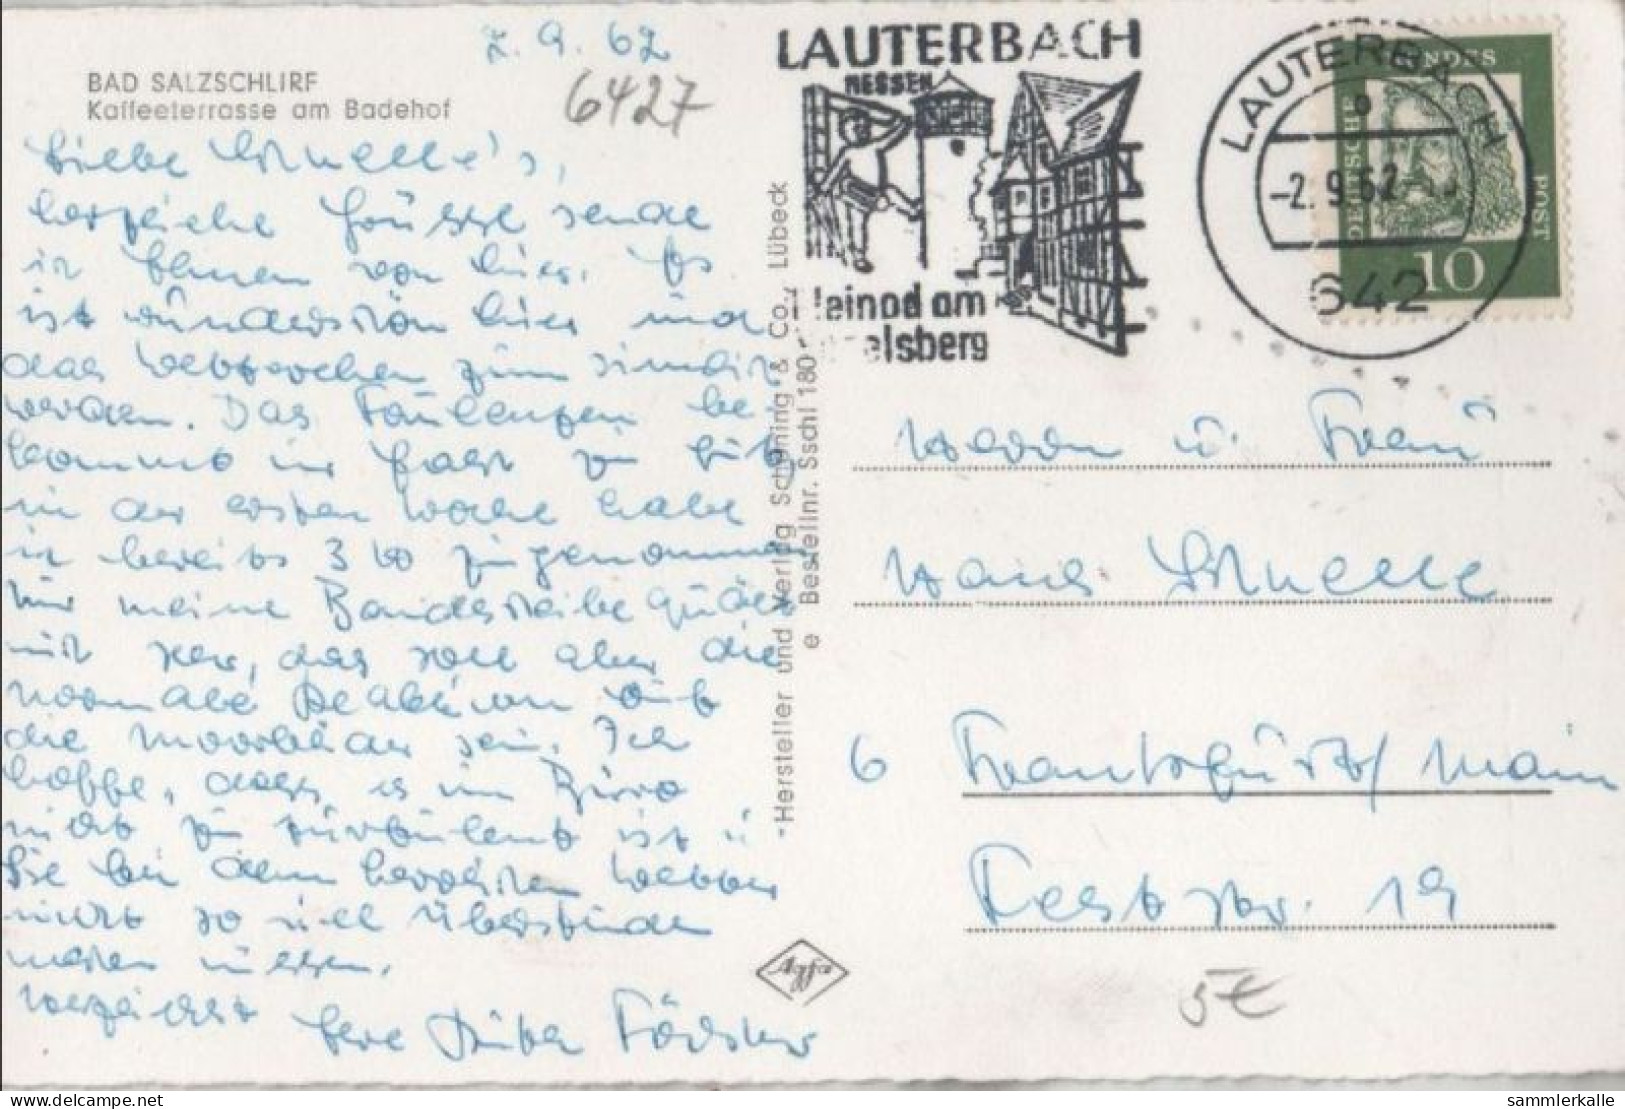 2. 9. 62
6427
BAD SALZSCHLIRF
Kaffeeterrasse am Badehof
Liebe Schnelle's,
herzliche Grüsse sende
ich Ihnen von hier. Es
ist wunderschön hier und
das Wetter
werden. Das Faulenzen be-
kommt mir fast zu gut,
in der ersten Woche habe
ich bereits 3 zugenommen
Nur meine Bandscheibe quält
mich sehr, das soll aber die
normale Reaktion auf
die Moorbäder sein. Ich
hoffe, dass es im Büro
nicht zu turbulent ist u.
Sie bei dem herrlichen Wetter
nicht so viel Überstunden
machen müssen.
Herzlichst Ihre Förster
-Hersteller und Verlag Schöning & Co., Lübeck
e Bestellnr. Sschl 180
LAUTERBACH
HESSEN
leinod am
elsberg
LAUTERBACH
-2. 9. 62
642
DEUTSCHE
BUNDES
POST
10
Herrn u. Frau
Hans Schnelle
6 Frankfurt/Main
Feststr. 19
Agfa
5€
© DELCAMPE
sammlerkalle